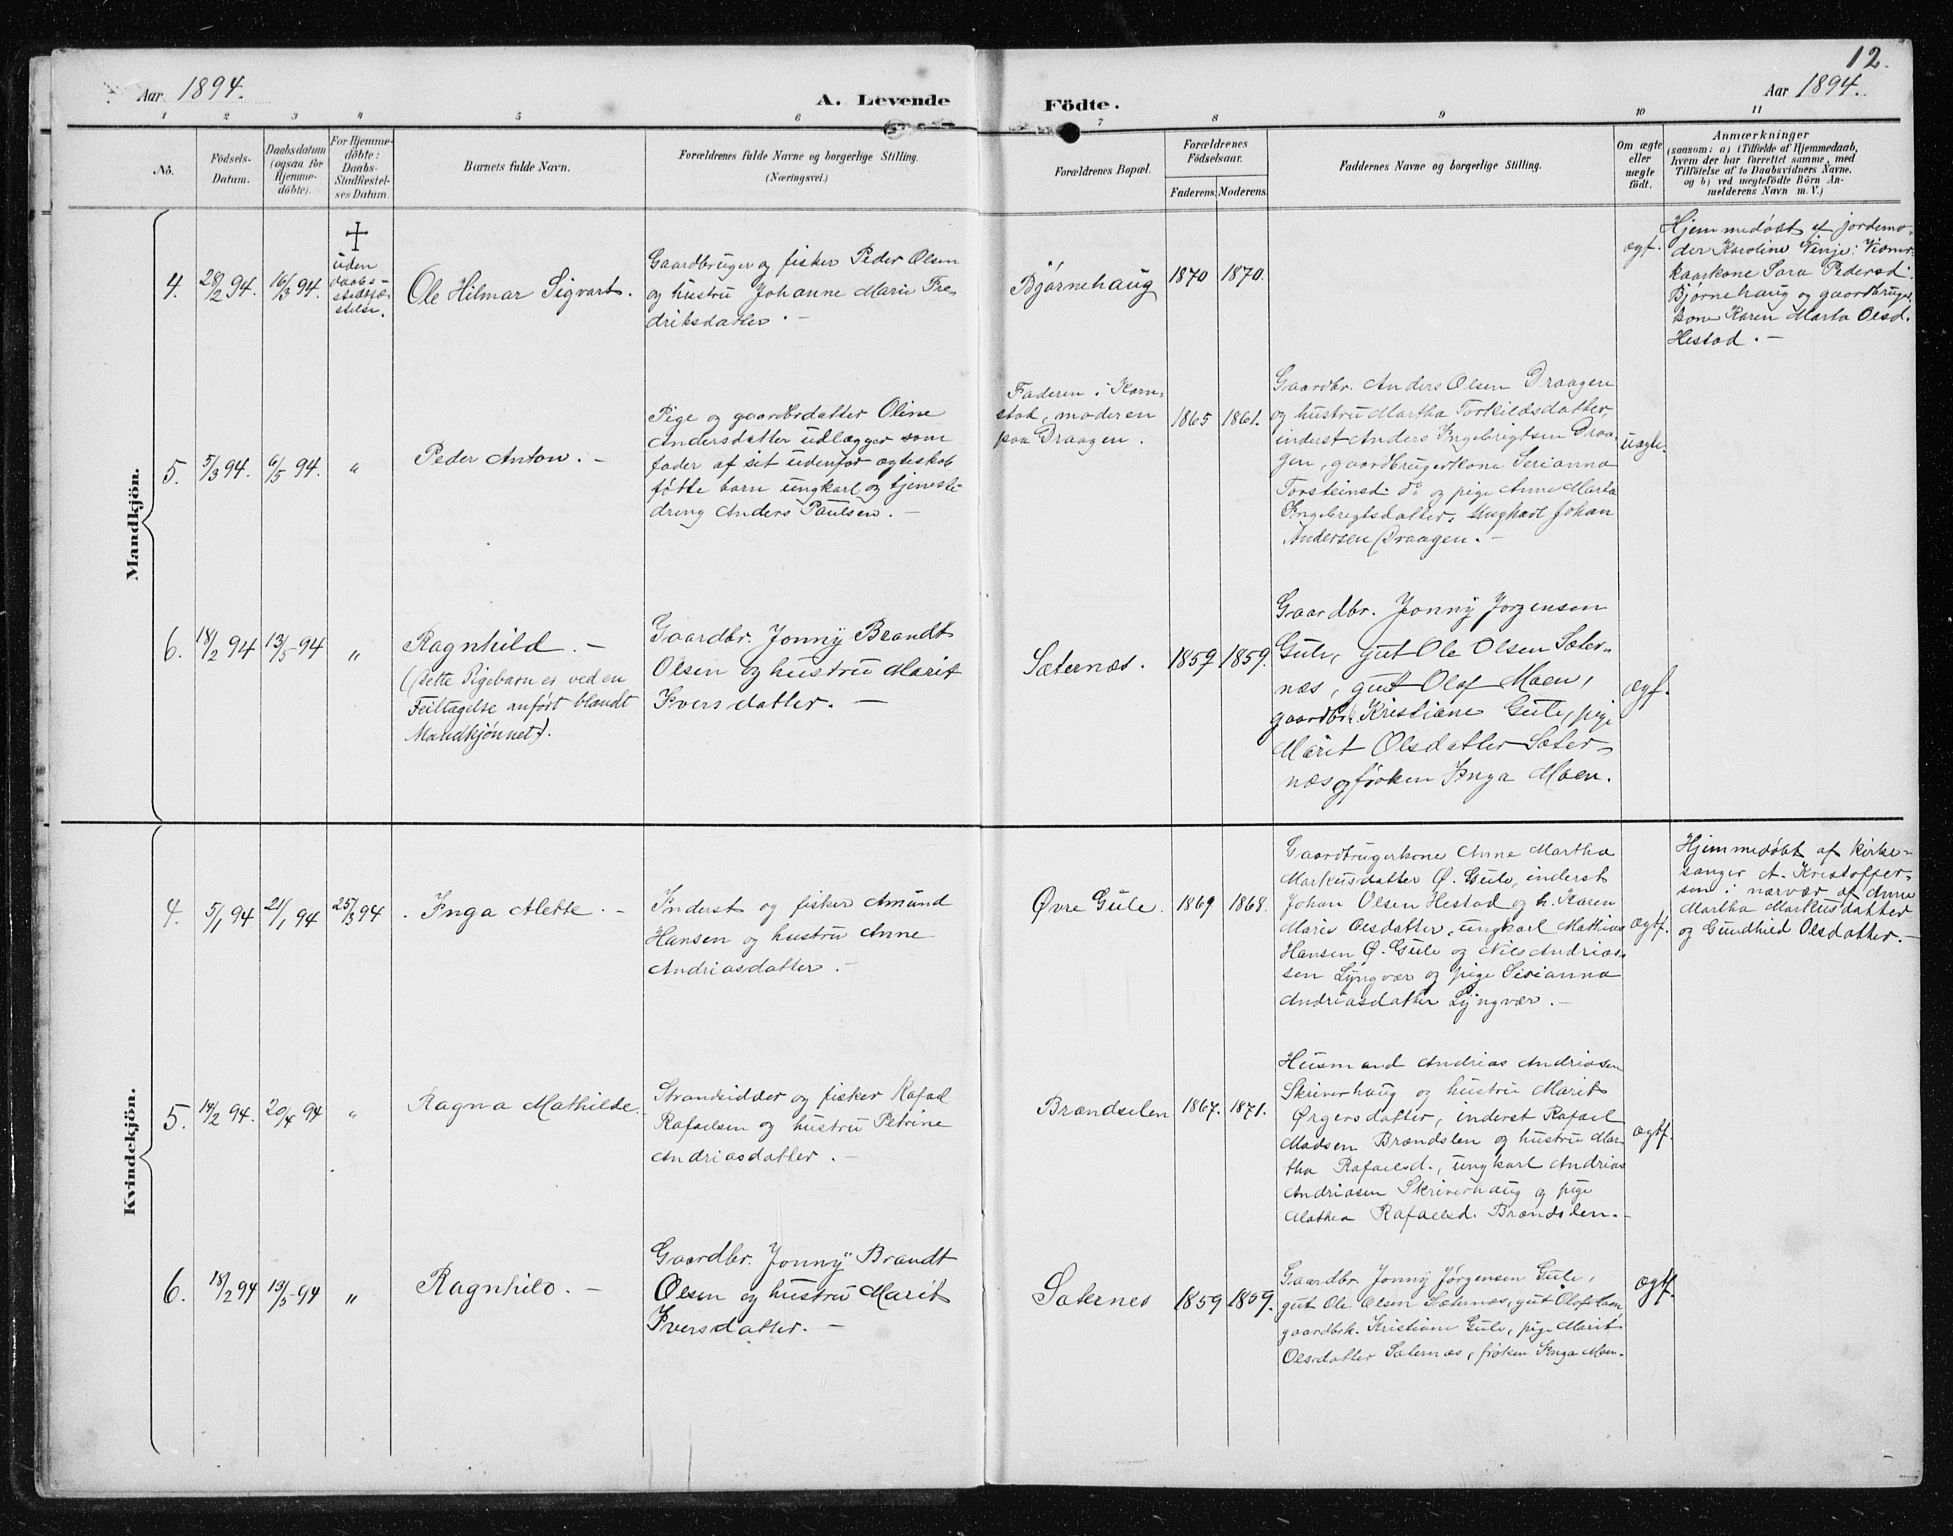 12.
Aar 1894.
A. Levende Födte.
Aar 1894.
1 2 3 4 5 6 7 8 9 10 11
No.
Födsels-
Datum.
Daabsdatum
(ogsaa for
Hjemme-
döbte).
For Hjemme-
döbte:
Daabs-
Stadfæstel-
ses Datum.
Barnets fulde Navn.
Forældrenes fulde Navne og borgerlige Stilling.
(Næringsvei.)
Forældrenes Bopæl.
Forældrenes
Födselsaar.
Faderens. Moderens.
Faddernes Navne og borgerlige Stilling.
Om ægte
eller
uægte
födt.
Anmærkninger
(saasom: a) i Tilfælde af Hjemmedaab,
hvem der har forrettet samme, med
Tilföielse af to Daabsvidners Navne,
og b) ved uægtefödte Börn An-
melderens Navn m. V.)
Mandkjön.
4.
28/2 94.
16/3 94.
uden
daabs-
stadfæ-
stelse.
Ole Hilmar Sigvart.
Gaardbruger og fisker Peder Olsen
og hustru Johanne Marie Fre-
driksdatter. —
Bjørnehaug
1870
1870.
ægf.
Hjemmedøbt af jordemo-
der Karoline Vinje:
kaarkone Sara Pedersd.
Bjørnehaug og gaardbruger
kone Karen Marta Olsd.
Hestad. —
5.
5/3 94.
6/5 94.
"
Peder Anton. —
Pige og gaardbrdatter Oline
Andersdatter udlægger som
fader af sit udenfor ægteskab
fødte barn ungkarl og tjeneste-
dreng Anders Paulsen. —
Faderen i Korn-
stad, moderen
paa Draagen.
1865
1861.
Gaardbr. Anders Olsen Draagen
og hustru Martha Torkildsdatter,
inderst Anders Ingebrigtsen Draa-
gen, gaardbrugerkone Serianna
Torsteinsd. do og pige Anne Marta
Ingebrigtsdatter, Ungkarl Johan
Andersen Draagen. —
uægte.
6.
18/2 94
13/5 94
"
Ragnhild. —
(dette Pigebarn er ved en
Feiltagelse anført blandt
Mandkjønnet).
Gaardbr. Jonny Brandt
Olsen og hustru Marit
Iversdatter. —
Sæternæs.
1859
1859.
Gaardbr. Jonny Jørgensen
Gule, gut Ole Olsen Sæter-
næs, gut Olaf Moen,
gaardbk. Kristiane Gule, pige
Marit Olsdatter Sæter-
næs og frøken Inga Moen.
ægf.
Kvindekjön.
4.
5/1 94
21/1 94
25/3 94
Inga Alette. —
Inderst og fisker Amund
Hansen og hustru Anne
Andriasdatter. —
Øvre Gule.
1869
1868.
Gaardbrugerkone Anne Martha
Markusdatter Ø. Gule, inderst
Johan Olsen Hestad og h. Karen
Marie Olsdatter, ungkarl Mathias
Hansen Ø. Gule og Nils Andrias-
sen Lyngvær og pige Serianna
Andriasdatter Lyngvær. —
ægtf.
Hjemmedøbt af kirke-
sanger A. Kristoffer-
sen i nærvær af Anne
Martha Markusdatter
og Gundhild Olsdatter. —
5.
14/2 94.
20/4 94
"
Ragna Mathilde.
Strandsidder og fisker Rafael
Rafaelsen og hustru Petrine
Andriasdatter. —
Brændselen
1867.
1871.
Husmand Andrias Andriasen
Skriverhaug og hustru Marit
Ørgersdatter, inderst Rafael
Madsen Brændslen og hustru Mar-
tha Rafaelsd., ungkarl Andrias
Andriasen Skriverhaug og pige
Alathea Rafaelsd. Brændslen. —
ægtf.
6.
18/2 94
13/5 94
"
Ragnhild. —
Gaardbr. Jonny Brandt
Olsen og hustru Marit
Iversdatter. —
Sæternes
1859
1859.
Gaardbr. Jonny Jørgensen Gule,
gut Ole Olsen Sæternæs, gut Olaf Moen
gaardbsk. Kristiane Gule, pige Marit
Olsdatter Sæternæs, frøken Inga Moen.
ægtf.